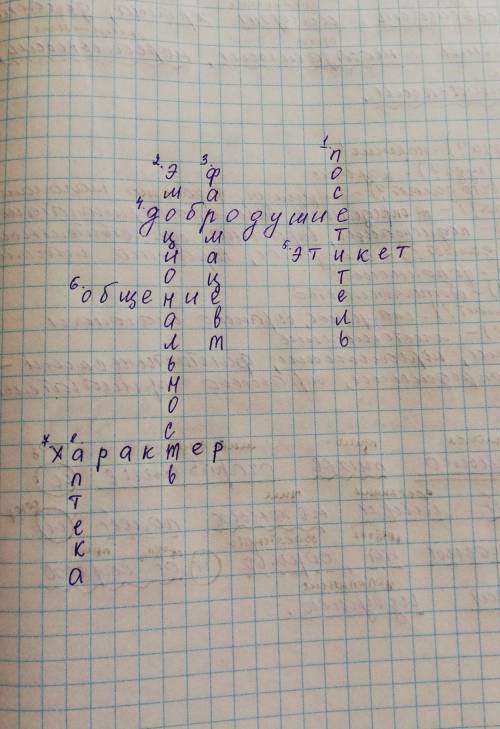 1. посетитель
2. эмоциональность
3. фармацевт
4. добродушие
5. этикет
6. общение
7. характер
8. аптека